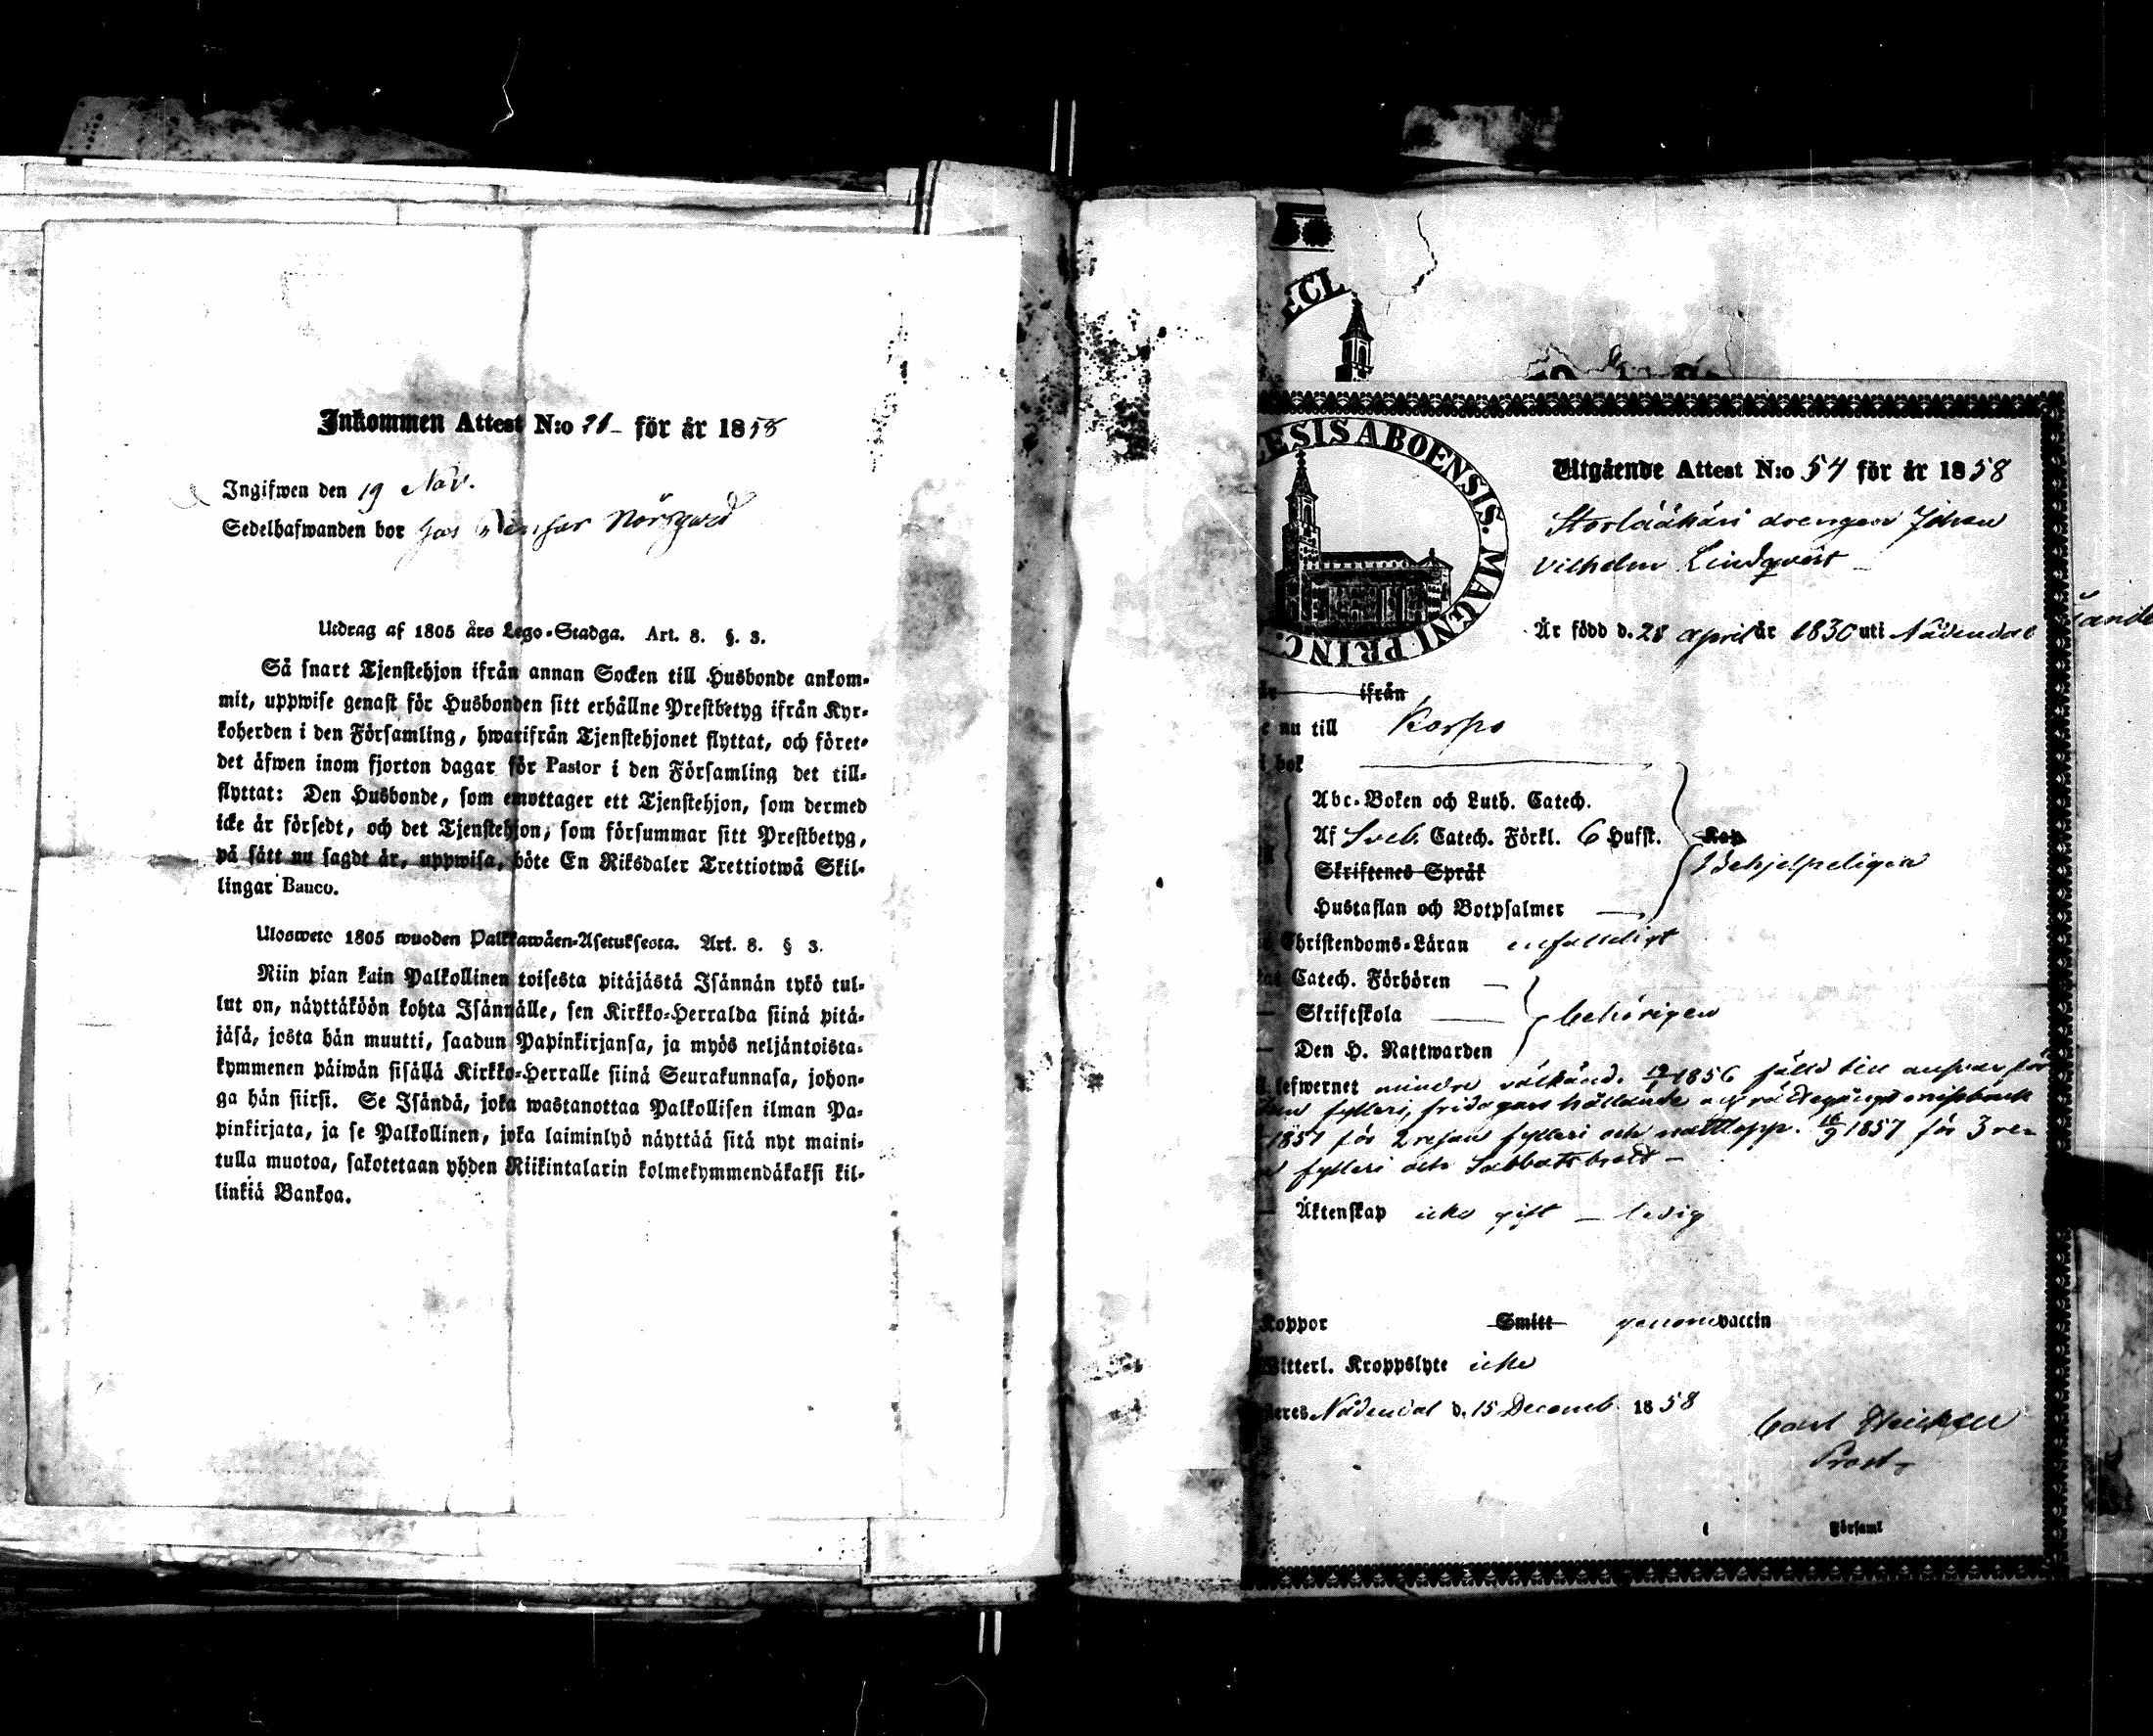 Inkommen Attest N:o för år 1858
Ingifwen den 19 Nov.
Sedelhafwanden bor hos Norrgård
Utdrag af 1805 års Lego-Stadga. Art. 8. §. 3.
Så snart Tjenstehjon ifrån annan Socken till Husbonde ankom-
mit, uppwise genast för Husbonden sitt erhållne Prestbetyg ifrån Kyr-
koherden i den Församling, hwarifrån Tjenstehjonet flyttat, och föret-
det äfwen inom fjorton dagar för Pastor i den Församling det till-
flyttat: Den Husbonde, som emottager ett Tjenstehjon, som dermed
icke är försedt, och det Tjenstehjon, som försummar sitt Prestbetyg,
på sätt nu sagdt är, uppwisa, böte En Riksdaler Trettiotwå Skil-
lingar Banco.
Uloswete 1805 wuoden Palkkawäen-Asetuksesta. Art. 8. § 3.
Niin pian kuin Palkollinen toisesta pitäjästä Isännän tykö tul-
lut on, näyttäköön kohta Isännälle, sen Kirkko-Herralda siinä pitä-
jäsä, josta hän muutti, saadun Papinkirjansa, ja myös neljäntoista-
kymmenen päiwän sisällä Kirkko-Herralle siinä Seurakunnasa, johon-
ga hän siirsi. Se Isändä, joka wastanottaa Palkollisen ilman Pa-
pinkirjata, ja se Palkollinen, joka laiminlyö näyttää sitä nyt maini-
tulla muotoa, sakotetaan yhden Riikintalarin kolmekymmendäkaksi kil-
linkiä Bankoa.
ECL
ESIS ABOENSIS. MAGNI PRINC.
Utgående Attest N:o 54 för år 1858
drengen Johan
Vilhelm Lindqvist
Är född d. 28 april år 1830 uti Nådendal
ifrån
nu till Korpo
bok
Abc-Boken och Luth. Catech.
Af Sveb. Catech. Förkl. 6 Hufst. Kap
Behjelpeligen
Skriftenes Språk
Hustaflan och Botpsalmer
Christendoms-Läran enfaldigt
Catech. Förhören
Skriftskola behörigen
Den H. Nattwarden
lefwernet mindre välkänd. 1856 fälld till ansvar för
fylleri,
1857 för 2 resan fylleri och 1857 för 3 re-
fylleri och Sabbatsbrott
Äktenskap icke gift — ledig
Koppor Smitt genom vaccin
Witterl. Kroppslyte icke
Nådendal d. 15 Decemb. 1858
Carl
Prost
Församl